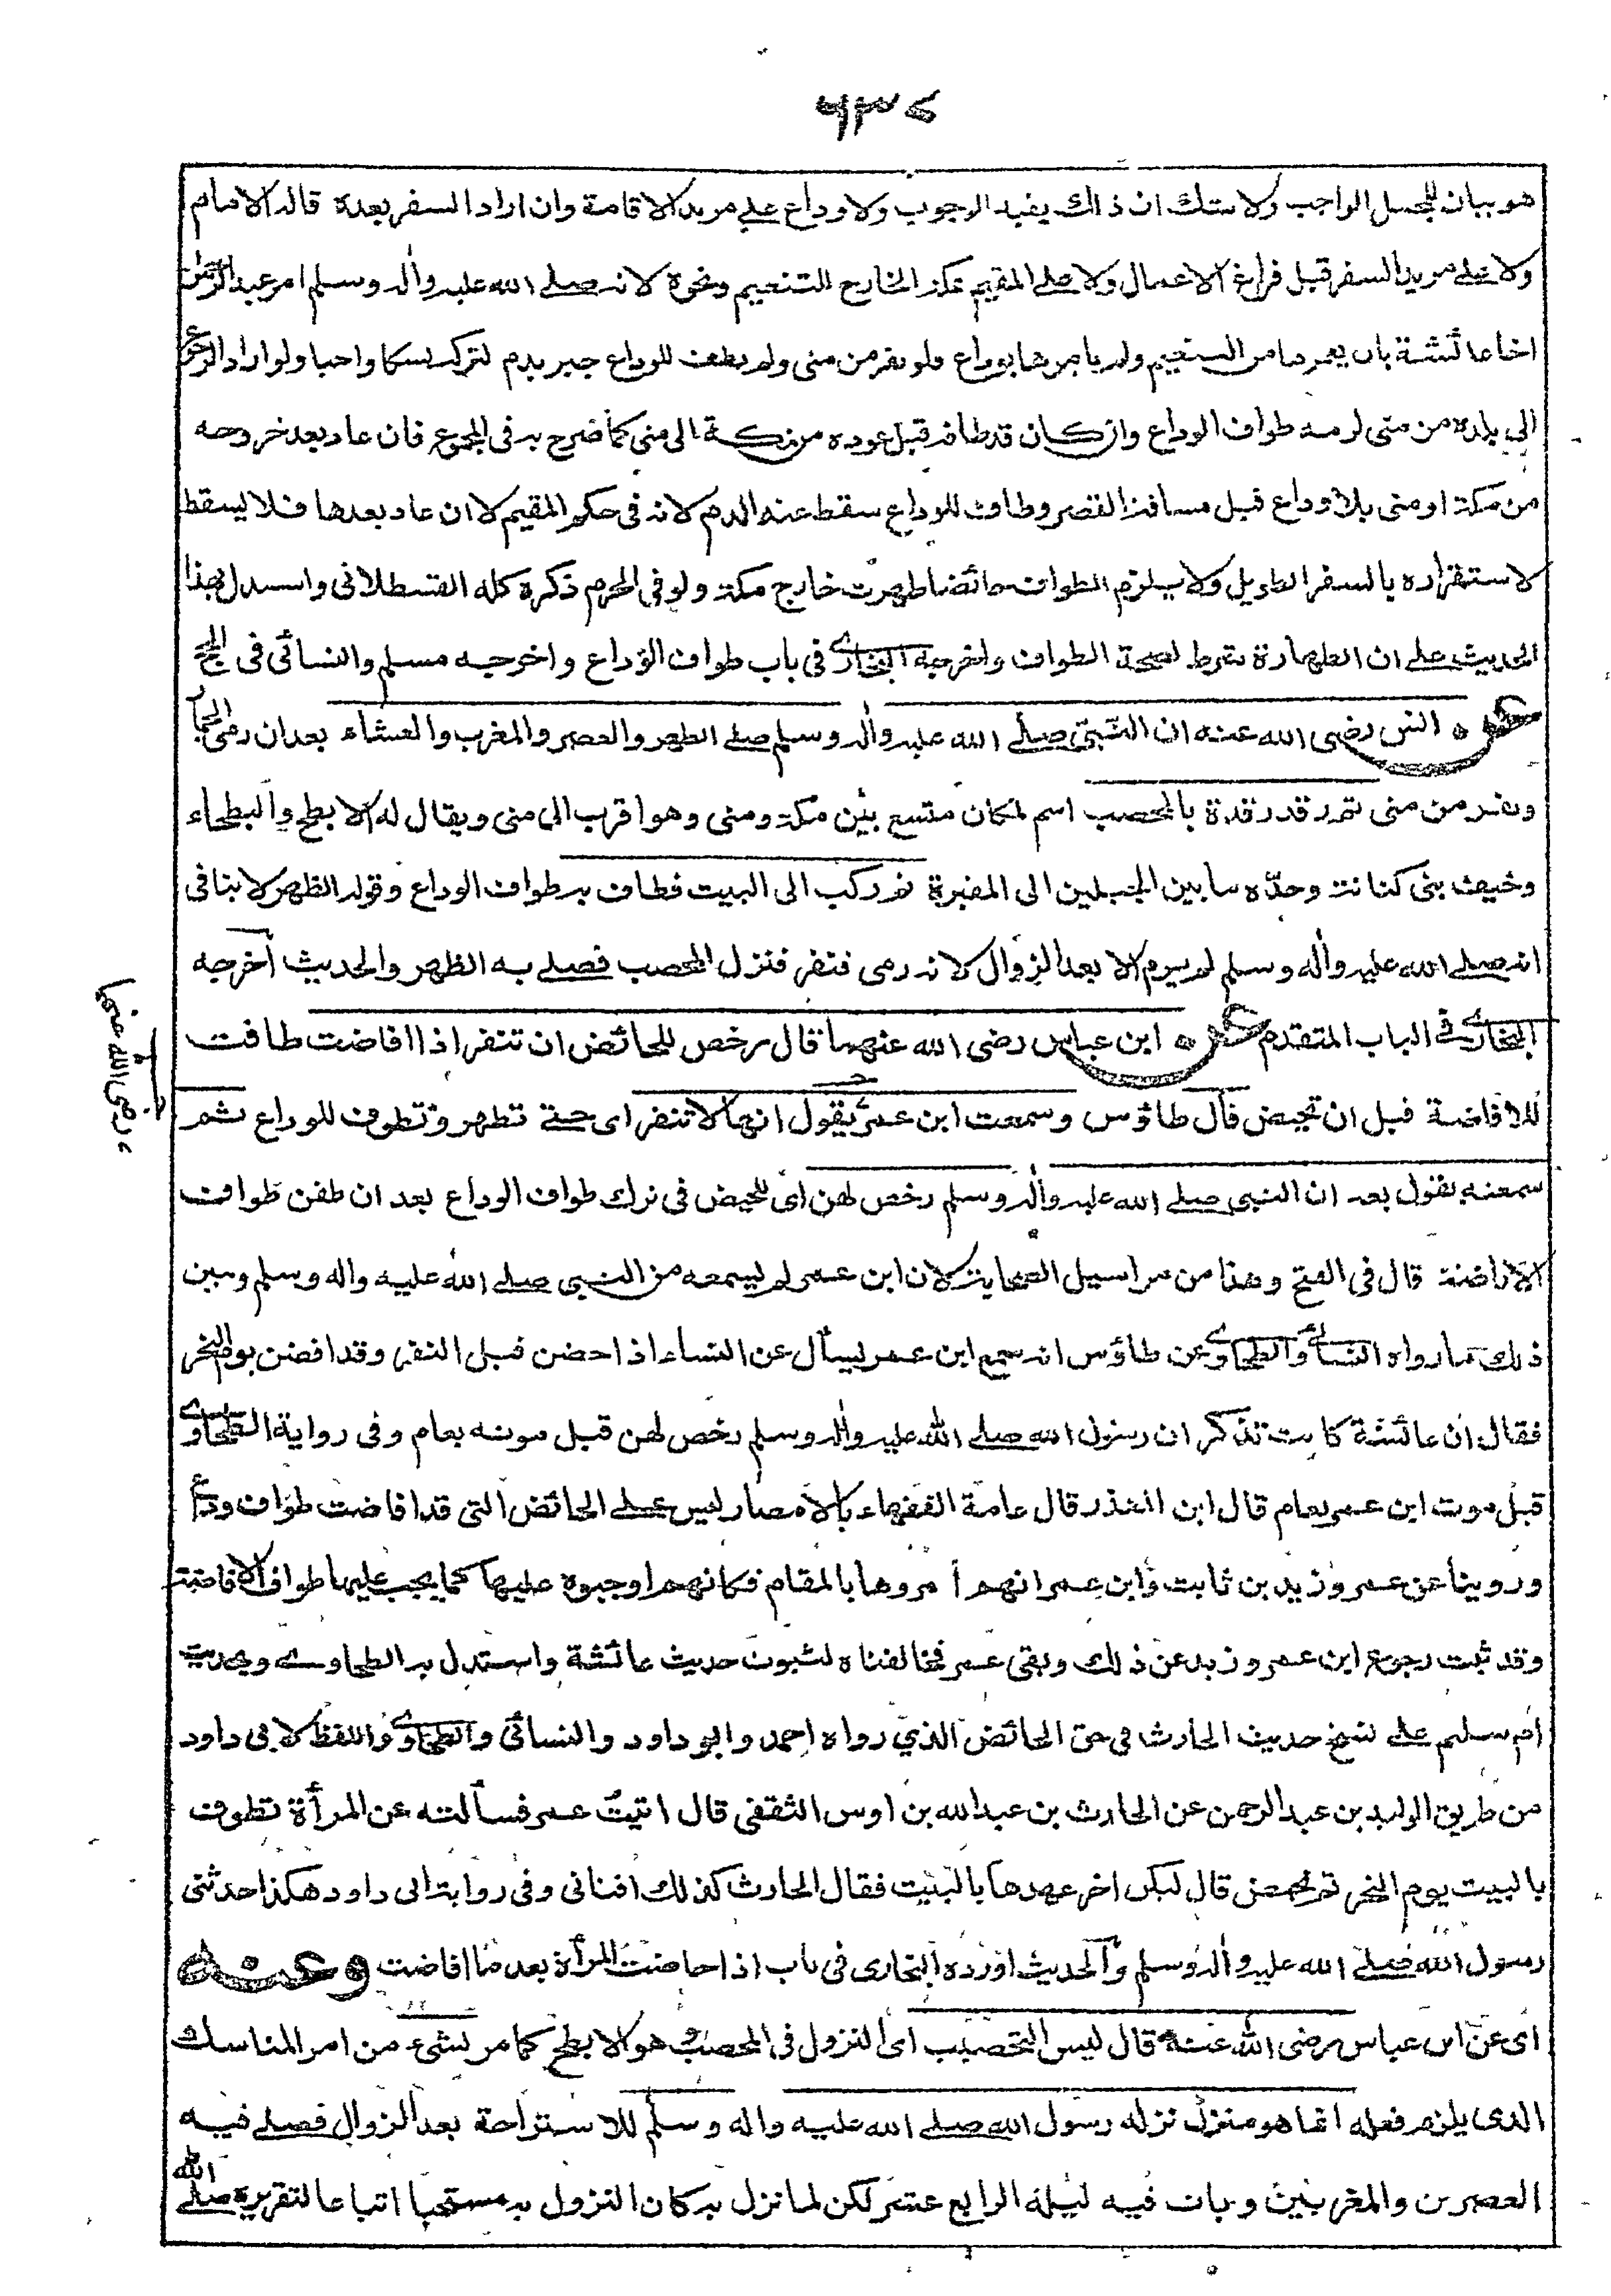 ٦٣٤
هو بيان للمجمل الواجب ولا شك ان ذلك يفيد الوجوب ولا وداع على مريد الاقامة وان اراد السفر بعدة قاله الامام
ولا على مريد السفر قبل فراغ الاعمال ولا على المقيم بمكة الخارج للتنعيم ونحوة لانه صلے الله عليه واٰله وسلم امر عبد الرحمٰن
اخا عائشة بان يعمرها من التنعيم ولم يامرها بوداع فلو نفر من منى ولم يطف للوداع جبر بدم لتركه نسكا واجبا ولو اراد الرجوع
الى بلده من منى لزمه طواف الوداع وان كان قد طافه قبل عوده من مكة الى منى كما صرح به فى المجموع فان عاد بعد خروجه
من مكة او منى بلا وداع قبل مسافة القصر وطاف للوداع سقط عنه الدم لانه فى حكم المقيم لا ان عاد بعدها فلا يسقط
لاستقراره بالسفر الطويل ولا يلزم الطواف حائضا طهرت خارج مكة ولو فى الحرم ذكرة كله القسطلانى واستدل بهذا
الحديث على ان الطهارة شرط لصحة الطواف واخرجه البخارے فى باب طواف الوداع واخرجه مسلم والنسائى فى الحج
عن انس رضى الله عنه ان النبى صلے الله عليه واٰله وسلم صلے الظهر والعصر والمغرب والعشاء بعد ان رمى الجمار
ونفر من منى ثم رقد رقدة بالمحصب اسم لمكان متسع بين مكة ومنى وهو اقرب الى منى ويقال له الابطح والبطحاء
وخيف بنى كنانة وحدّه ما بين الجبلين الى المقبرة ثم ركب الى البيت فطاف به طواف الوداع وقوله الظهر لا ينافى
انه صلے الله عليه واٰله وسلم لم يرم الا بعد الزوال لانه رمى فنفر فنزل المحصب فصلے به الظهر والحديث اخرجه
البخارے فى الباب المتقدم عن ابن عباس رضى الله عنهما قال رخص للحائض ان تنفر اذا افاضت طافت
للافاضة قبل ان تحيض قال طاؤس وسمعت ابن عمر يقول انها لا تنفر اى حتے تطهر وتطوف للوداع ثم
رضى الله عنهما
سمعته يقول بعد ان النبى صلے الله عليه واٰله وسلم رخص لهن اى للحيض فى ترك طواف الوداع بعد ان طفن طواف
الافاضة قال فى الفتح وهذا من مراسيل الصحابة لان ابن عمر لم يسمعه من النبى صلے الله عليه واٰله وسلم وبين
ذلك ما رواه النسائے والطحاوے عن طاؤس انه سمع ابن عمر يسأل عن النساء اذا حضن قبل النفر وقد افضن يوم النحر
فقال ان عائشة كانت تذكر ان رسول الله صلے الله عليه واٰله وسلم رخص لهن قبل موته بعام وفى رواية الطحاوے
قبل موت ابن عمر بعام قال ابن المنذر قال عامة الفقهاء بالامصار ليس على الحائض التى قد افاضت طواف وداع
وروينا عن عمر وزيد بن ثابت وابن عمر انهم أمروها بالمقام فكانهم اوجبوه عليها كما يجب عليها طواف الافاضة
وقد ثبت رجوع ابن عمر وزيد عن ذلك وبقى عمر فخالفناه لثبوت حديث عائشة واستدل به الطحاوے وبحديث
ام سليم على نسخ حديث الحارث فى حق الحائض الذى رواه احمد وابو داود والنسائى والطحاوے واللفظ لابى داود
من طريق الوليد بن عبد الرحمن عن الحارث بن عبدالله بن اوس الثقفى قال اتيت عمر فسألته عن المرأة تطوف
بالبيت يوم النحر ثم تحيض قال ليكن اخر عهدها بالبيت فقال الحارث كذلك افتانى وفى رواية ابى داود هكذا حدثنى
رسول الله صلے الله عليه واٰله وسلم والحديث اورده البخارى فى باب اذا حاضت المرأة بعد ما افاضت وعنه
اى عن ابن عباس رضى الله عنه قال ليس التحصيب اى النزول فى المحصب وهو الابطح كما مر بشئ من امر المناسك
الذى يلزم فعله انما هو منزل نزله رسول الله صلے الله عليه واٰله وسلم للاستراحة بعد الزوال فصلے فيه
العصرين والمغربين وبات فيه ليلة الرابع عشر لكن لما نزل به كان النزول به مستحبا اتباعا لتقريره صلے الله